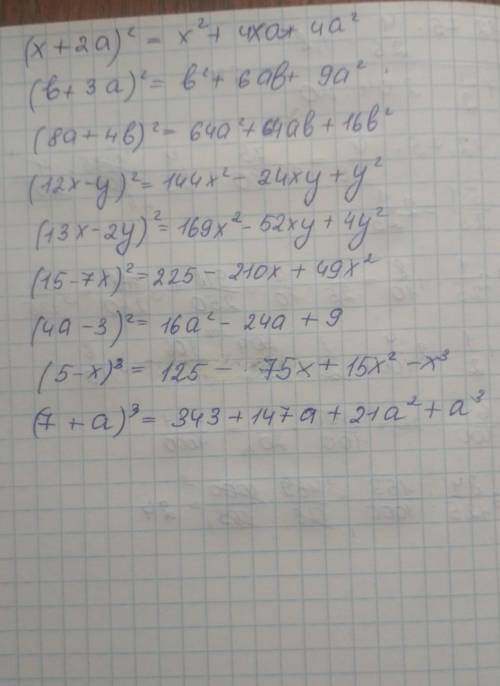 (x + 2a)² = x² + 4xa + 4a²
(в + 3a)² = в² + 6aв + 9a²
(8a + 4в)² = 64a² + 64aв + 16в²
(12x - y)² = 144x² - 24xy + y²
(13x - 2y)² = 169x² - 52xy + 4y²
(15 - 7x)² = 225 - 210x + 49x²
(4a - 3)² = 16a² - 24a + 9
(5 - x)³ = 125 - 75x + 15x² - x³
(7 + a)³ = 343 + 147a + 21a² + a³